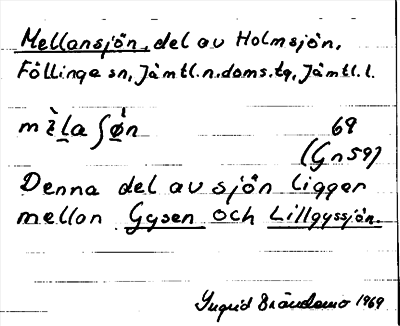 Mellansjön, del av Holmsjön,
Föllinge sn, Jämtl.n.doms.tg, Jämtl.l.
69
(Gn59)
Denna del av sjön ligger
mellan Gysen och Lillgyssjön.
Ingrid 1969